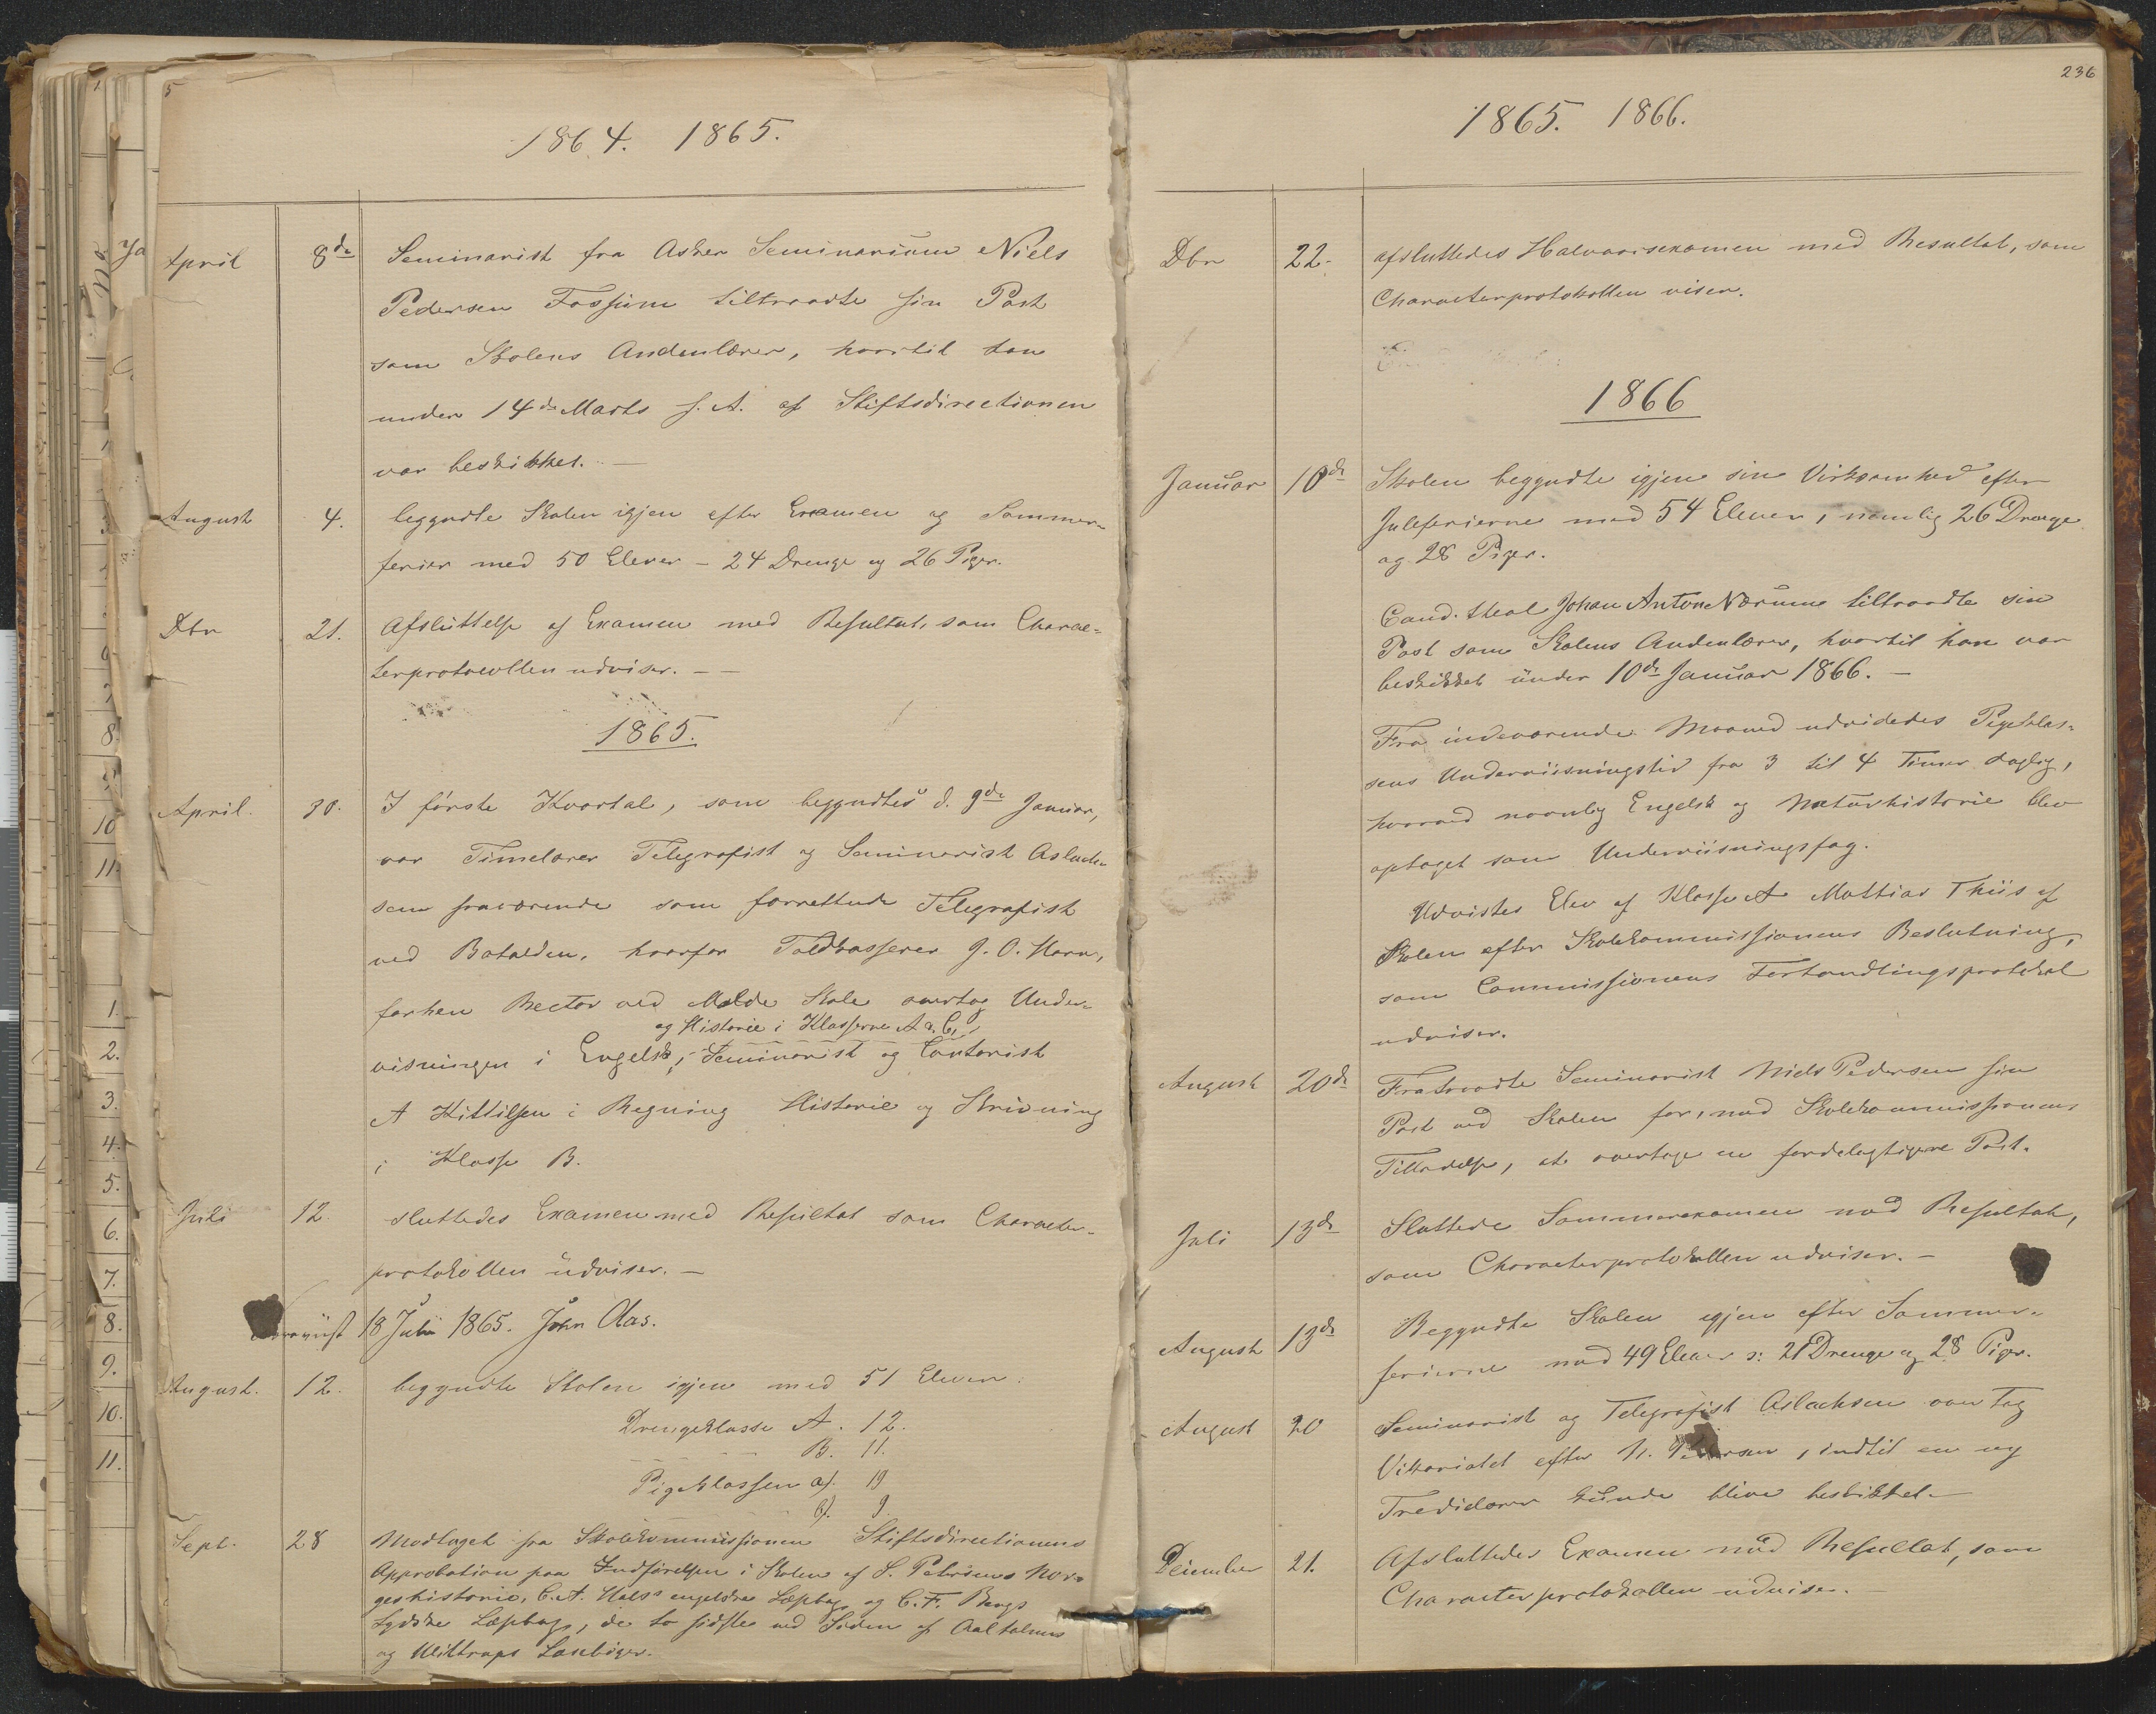 1864. 1865.
April 8de Seminarist fra Asker Seminarium Niels
Pedersen Fossum tiltraadte sin Post
som Skolens Andenlærer, hvortil han
under 14de Marts s. A. af Stiftsdirectionen
var beskikket. —
August 4. begyndte Skolen igjen efter Examen og Sommer-
ferier med 50 Elever - 24 Drenge og 26 Piger.
Dbr 21. Afsluttelse af Examen med Resultat, som Charac-
terprotocollen udviser. —
1865.
April. 30. I første Kvartal, som begyndtes d. 9de Januar,
var Timelærer Telegrafist og Seminarist Aslach-
sen fraværende som forrettende Telegrafist
ved Batalden, hvorfor Toldkasserer J. O. Horn,
forhen Rector ved Molde Skole overtog Under-
og Historie i Klasserne A a. b,
visningen i Engelsk, Seminarist og Contorist
A Kittilsen i Regning Historie og Skrivning
i Klasse B.
Juli 12. sluttedes Examen med Resultat som Character-
protokollen udviser. —
18 Juli 1865. John Aas.
August. 12. begyndte Skolen igjen med 51 Elever:
Drengeklasse A. 12.
B. 11.
Pigeklassen a). 19
b). 9.
Sept. 28 Modtaget fra Skolekommissionen Stiftsdirectionens
Approbation paa Indførelsen i Skolen af S. Petersens Nor-
geshistorie, C. A. engelske Læsebog og C. F. Bergs
tydske Læsebog, de to sidste ved Siden af
og Læsebøger.
236
1865. 1866.
Dbr 22. afsluttedes Halvaarsexamen med Resultat, som
Characterprotokollen viser.
1866
Januar 10de Skolen begyndte igjen sin Virksomhed efter
Juleferierne med 54 Elever, nemlig 26 Drenge
og 28 Piger.
Cand. theol Johan Anton Nærum tiltraadte sin
Post som Skolens Andenlærer, hvortil han var
beskikket under 10de Januar 1866. —
Fra indeværende Maaned udvidedes Pigeklas-
sens Underviisningstid fra 3 til 4 Timer daglig,
hvorved navnlig Engelsk og Naturhistorie blev
optaget som Underviisningsfag.
Udvistes Elev af Klasse A Mathias Thiis af
Skolen efter Skolekommissionens Beslutning,
som Commissionens Forhandlingsprotokol
udviser.
August 20de Fratraadte Seminarist Niels Pedersen sin
Post ved Skolen for, med Skolekommissionens
Tilladelse, at overtage en fordelagtigere Post.
Juli 13de Sluttede Sommerexamen med Resultat,
som Characterprotokollen udviser. —
August 13de Begyndte Skolen igjen efter Sommer-
ferierne med 49 Elever ɔ: 21 Drenge og 28 Piger.
August 20 Seminarist og Telegrafist Aslachsen overtog
Vikariatet efter N. Pedersen, indtil en ny
Tredielærer kunde blive beskikket —
December 21. Afsluttedes Examen med Resultat, som
Characterprotokollen udviser. —